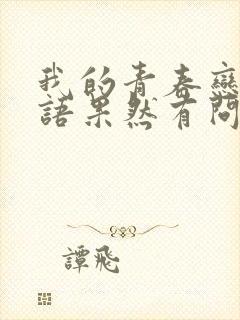 我的青春戀
語果然有問
譚飛